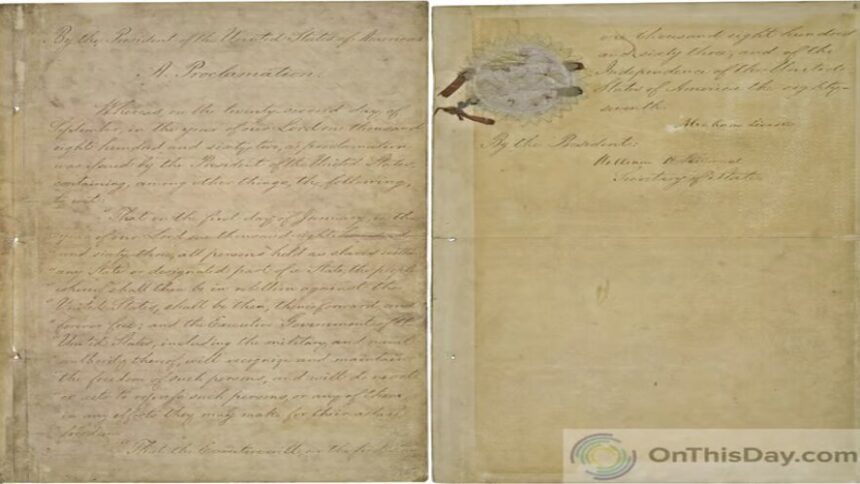 By the President of the United States of America:
A Proclamation.
Whereas, on the twenty-second day of
September, in the year of our Lord one thousand
eight hundred and sixty two, a proclamation
was issued by the President of the United States,
containing, among other things, the following,
to wit:
"That on the first day of January, in the
"year of our Lord one thousand eight hundred
"and sixty-three, all persons held as slaves within
"any State or designated part of a State, the people
"whereof shall then be in rebellion against the
"United States, shall be then, thenceforward, and
"forever free; and the Executive Government of the
"United States, including the military and naval
"authority thereof, will recognize and maintain
"the freedom of such persons, and will do no act
"or acts to repress such persons, or any of them,
"in any efforts they may make for their actual
"freedom.
"That the Executive will, on the first
one thousand eight hundred
and sixty three, and of the
Independence of the United
States of America the eighty-
seventh.
Abraham Lincoln
By the President:
William H. Seward
Secretary of State.
OnThisDay.com